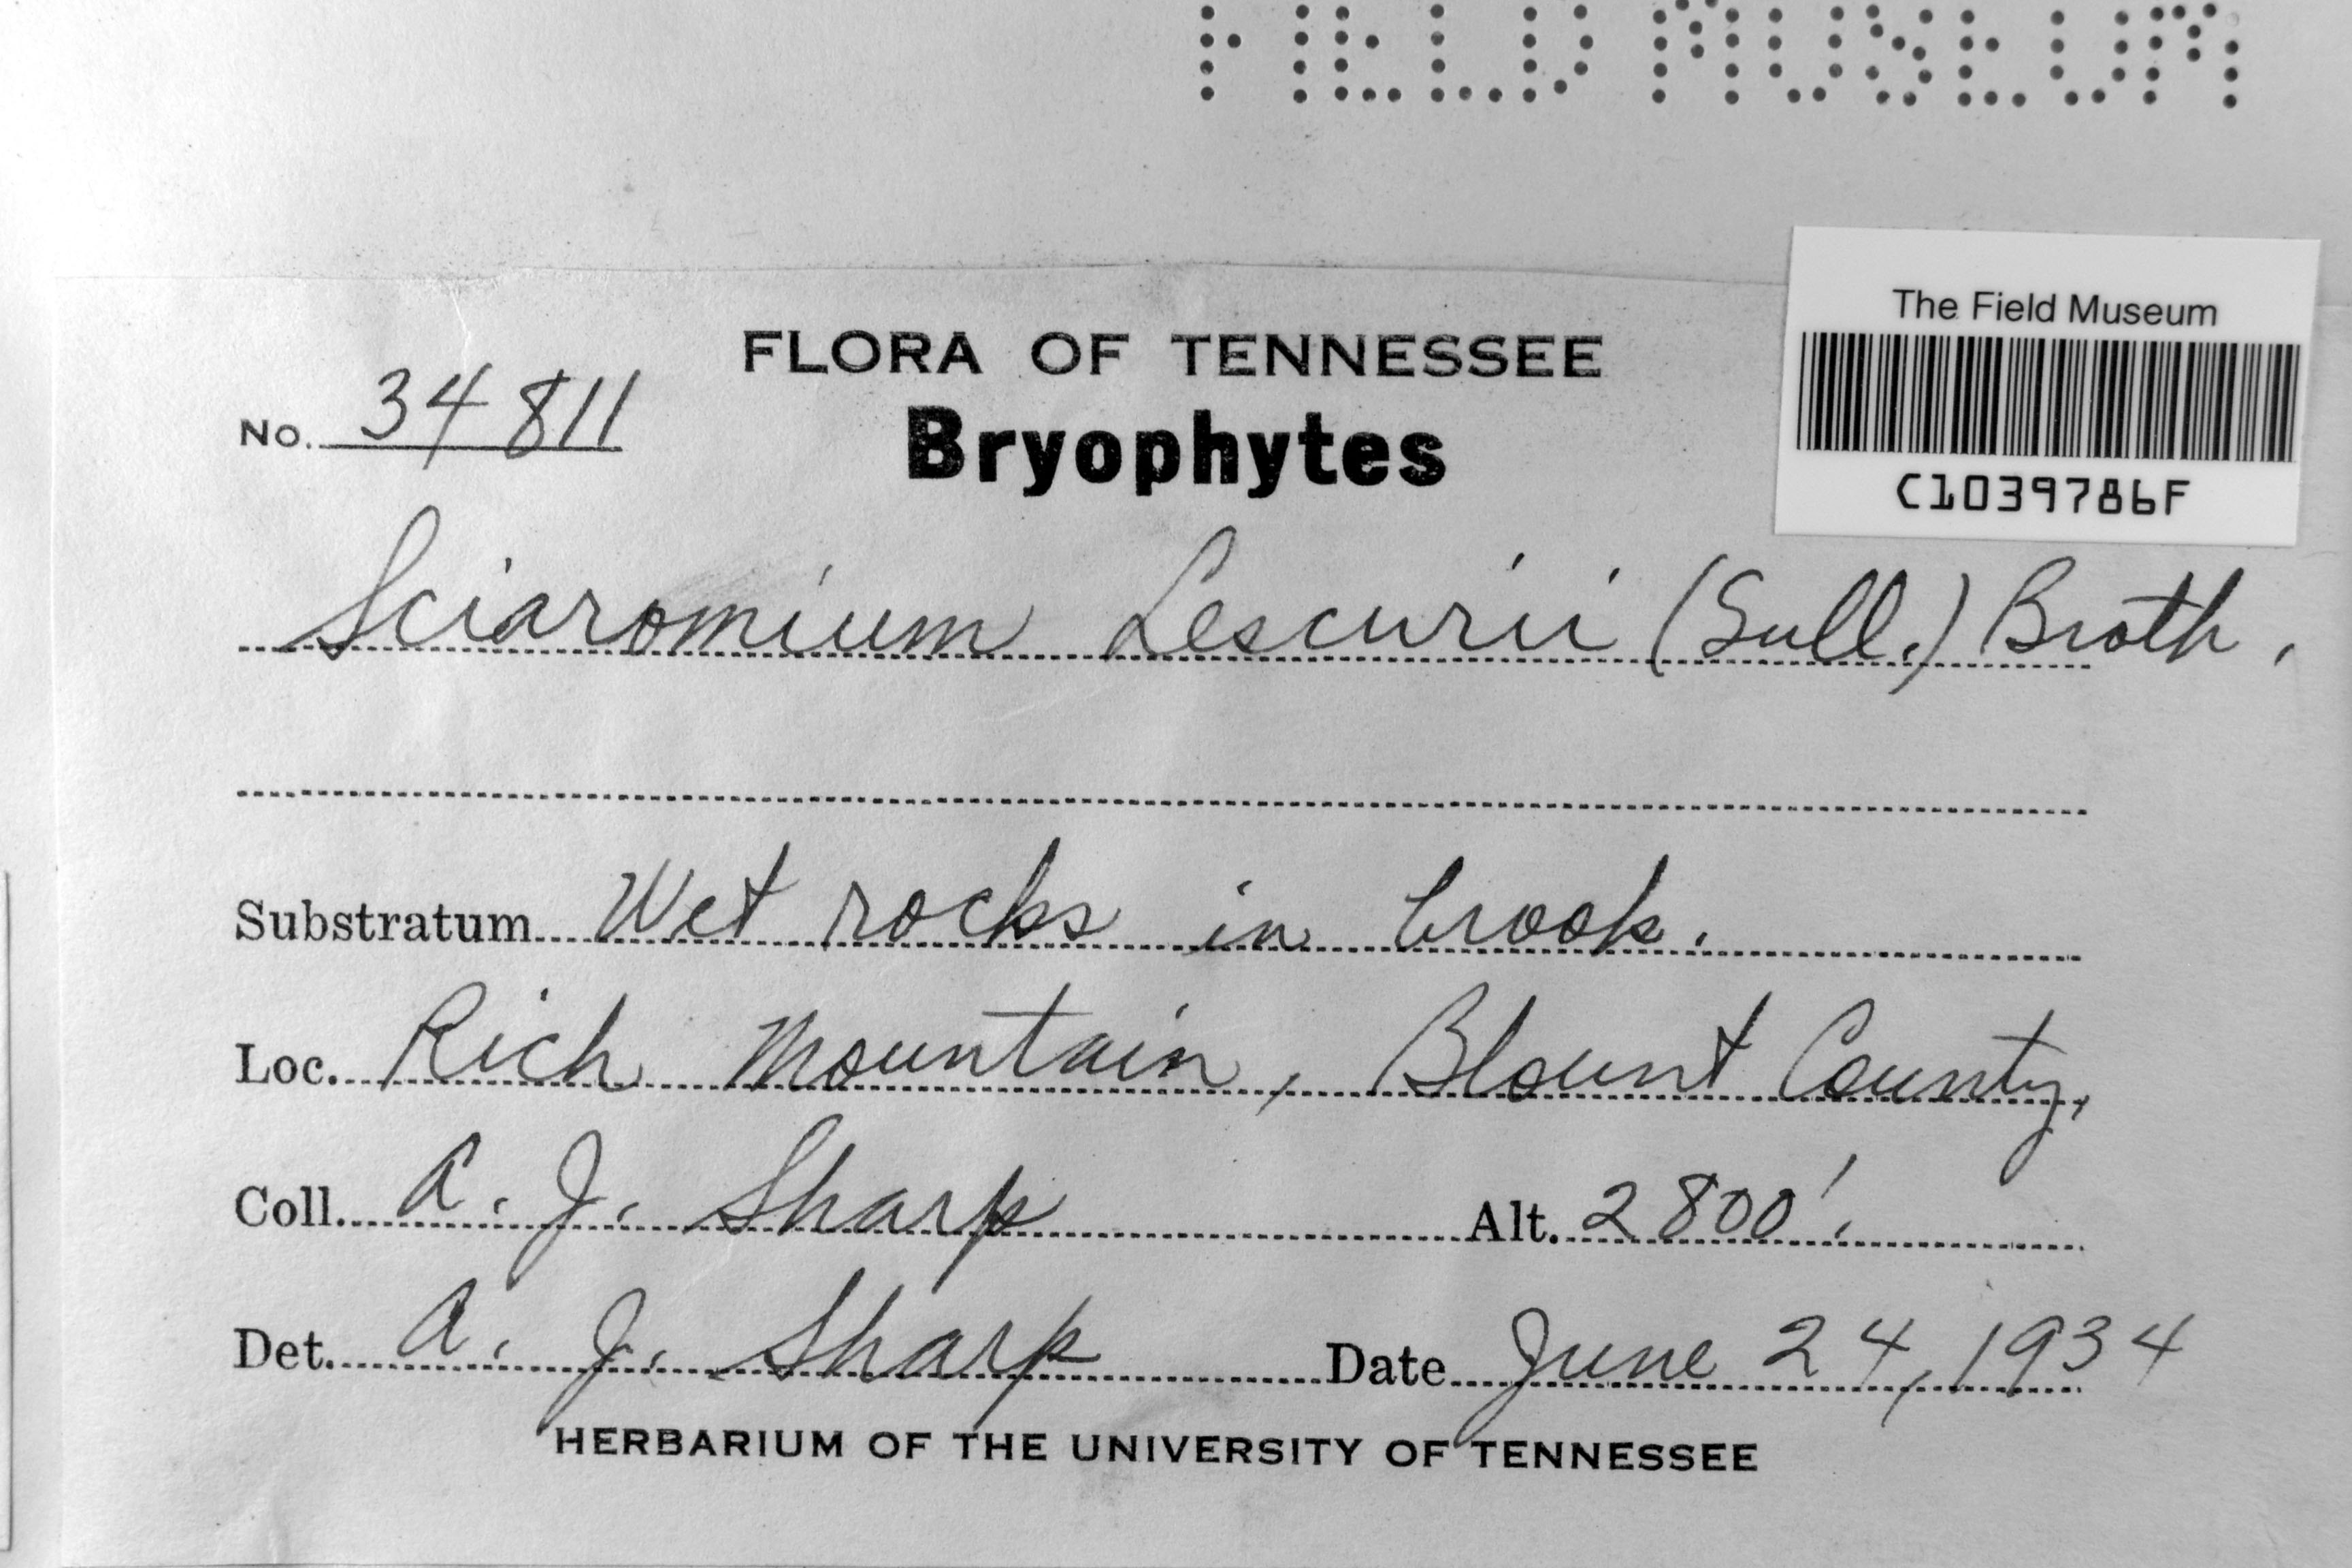 FIELD MUSEUM
The Field Museum
C1039786F
FLORA OF TENNESSEE
No. 34811
Bryophytes
Sciaromium Lescurii (Sull.) Broth.
Substratum Wet rocks in brook.
Loc. Rich Mountain, Blount County,
Coll. A. J. Sharp Alt. 2800'.
Det. A. J. Sharp Date June 24, 1934
HERBARIUM OF THE UNIVERSITY OF TENNESSEE